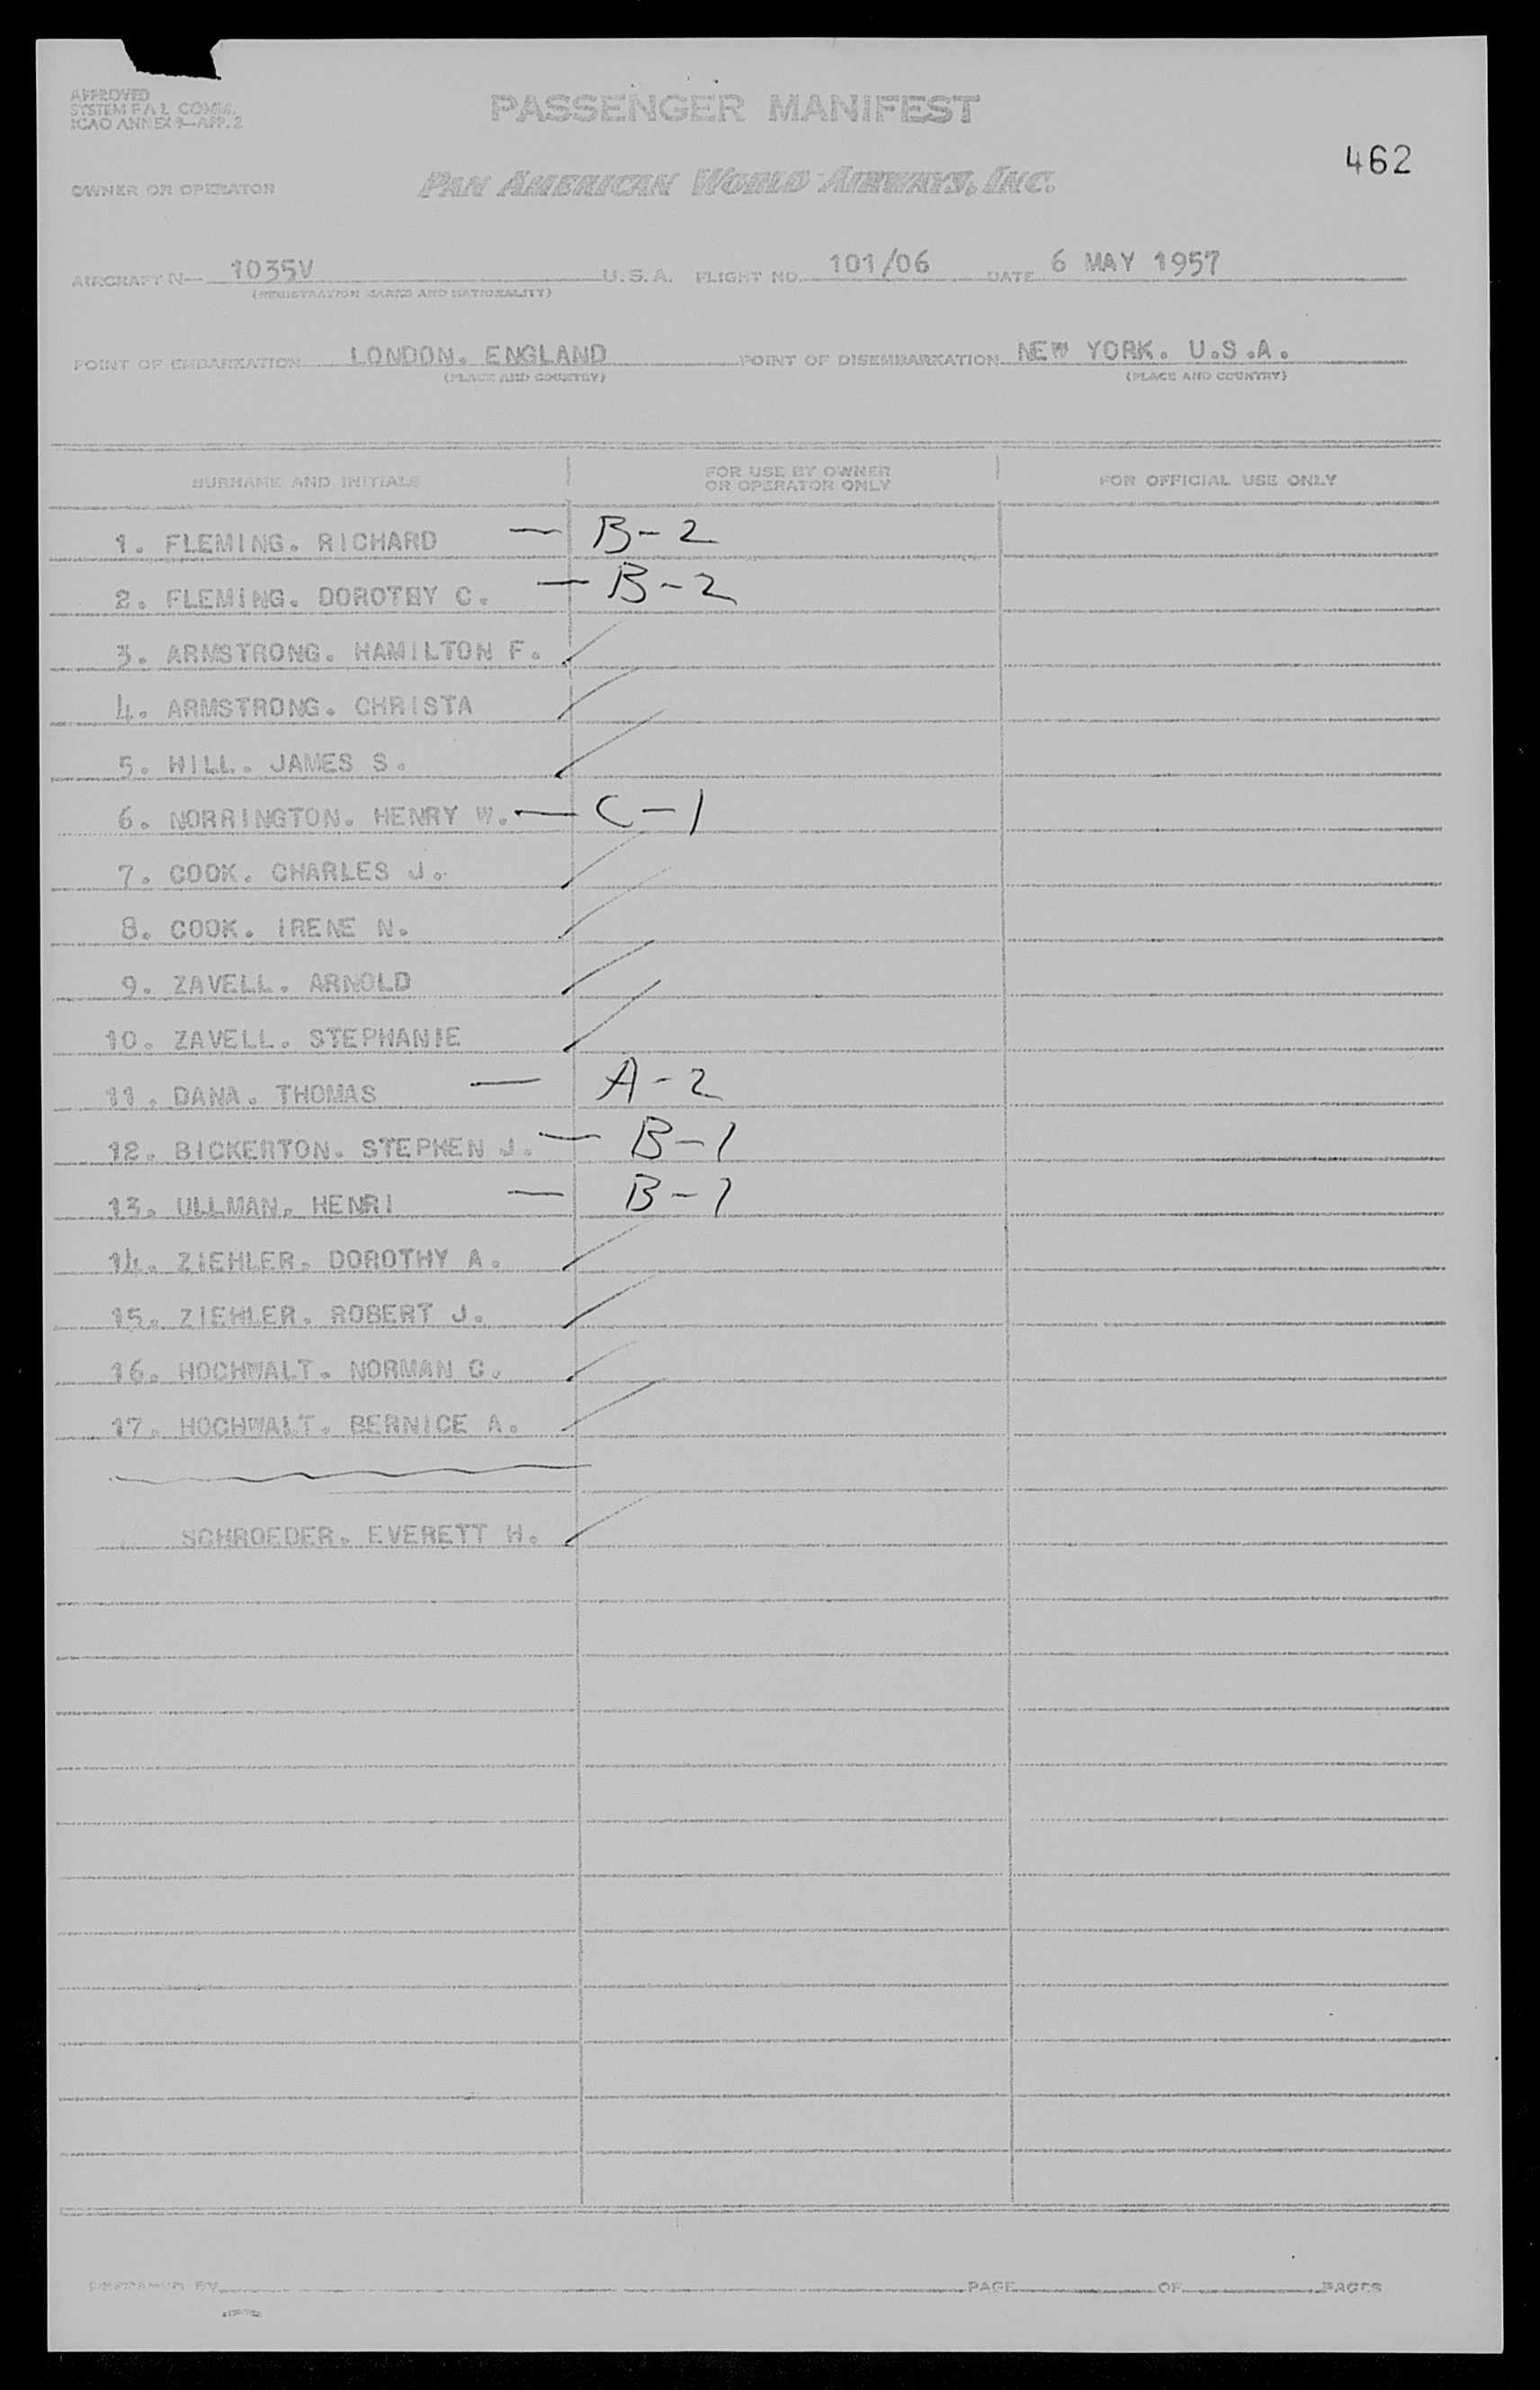 APPROVED
SYSTEM F A L COMM.
ICAO ANNEX 9—APP. 2
PASSENGER MANIFEST
462
OWNER OR OPERATOR PAN AMERICAN WORLD AIRWAYS, INC.
AIRCRAFT N— 1035V U.S.A. FLIGHT NO. 101/06 DATE 6 MAY 1957
(REGISTRATION MARKS AND NATIONALITY)
POINT OF EMBARKATION LONDON. ENGLAND POINT OF DISEMBARKATION NEW YORK. U.S.A.
(PLACE AND COUNTRY) (PLACE AND COUNTRY)
SURNAME AND INITIALS FOR USE BY OWNER OR OPERATOR ONLY FOR OFFICIAL USE ONLY
1. FLEMING. RICHARD — B-2
2. FLEMING. DOROTHY C. — B-2
3. ARMSTRONG. HAMILTON F.
4. ARMSTRONG. CHRISTA
5. HILL. JAMES S.
6. NORRINGTON. HENRY W. — C-1
7. COOK. CHARLES J.
8. COOK. IRENE N.
9. ZAVELL. ARNOLD
10. ZAVELL. STEPHANIE
11. DANA. THOMAS — A-2
12. BICKERTON. STEPHEN J. — B-1
13. ULLMAN. HENRI — B-1
14. ZIEHLER. DOROTHY A.
15. ZIEHLER. ROBERT J.
16. HOCHWALT. NORMAN C.
17. HOCHWALT. BERNICE A.
SCHROEDER. EVERETT H.
PREPARED BY PAGE OF PAGES